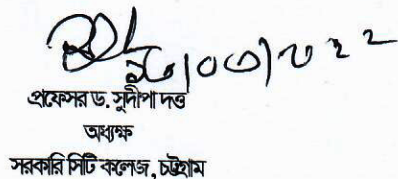 প্রফেসর ড. সুদীপা দত্ত
অধ্যক্ষ
সরকারি সিটি কলেজ, চট্টগ্রাম